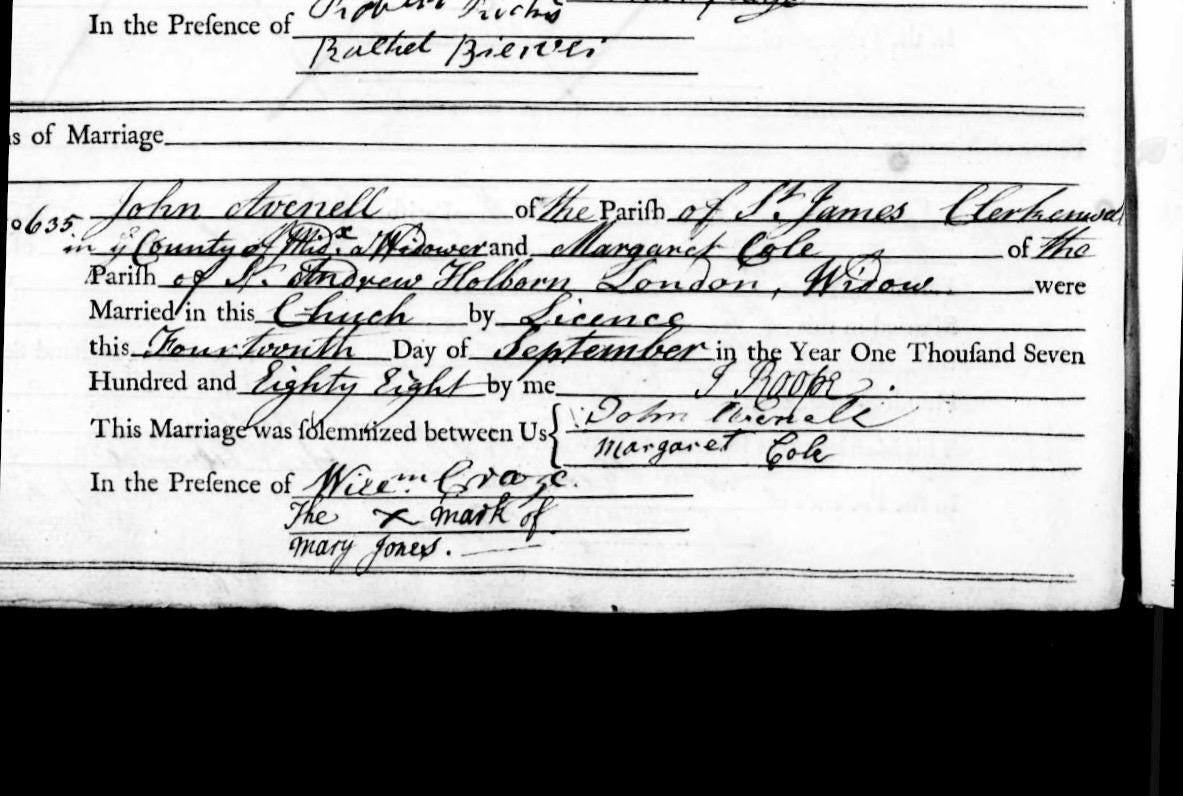 In the Preſence of Robert
Rathel Biervei
s of Marriage
o635 John Avenell of the Pariſh of St. James Clerkenwel
in ye County of Midx. a Widower and Margaret Cole of the
Pariſh of St. Andrew Holborn London, Widow were
Married in this Chuch by Licence
this Fourteenth Day of September in the Year One Thouſand Seven
Hundred and Eighty Eight by me J Roope.
This Marriage was ſolemnized between Us { John Avenell
Margaret Cole
In the Preſence of Willm
The X Mark of
Mary Jones.